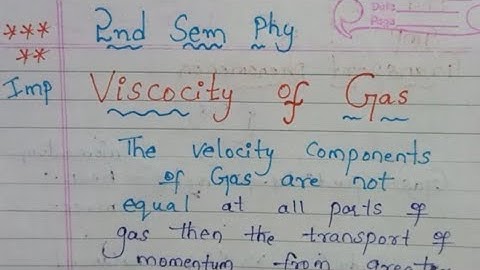 Date
Page
*** 2nd Sem Phy
**
Imp Viscocity of Gas
The velocity components
of Gas are not
equal at all parts of
gas then the transport of
momentum from